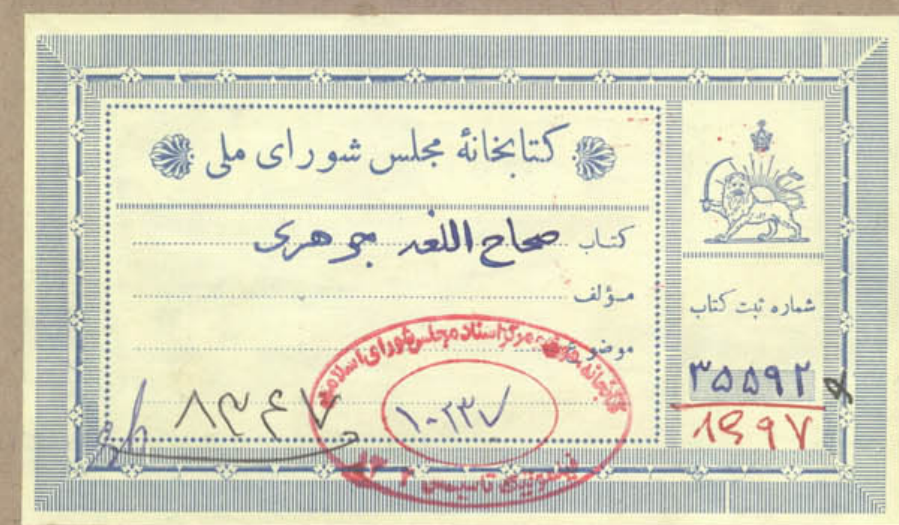 کتابخانهٔ مجلس شورای ملی
کتاب صحاح اللغه جوهری
مؤلف
موضوع
شماره ثبت کتاب
۳۵۵۹۲
۸۳۴۷
۱۰۲۳۷
کتابخانه، موزه و مرکز اسناد مجلس شورای اسلامی